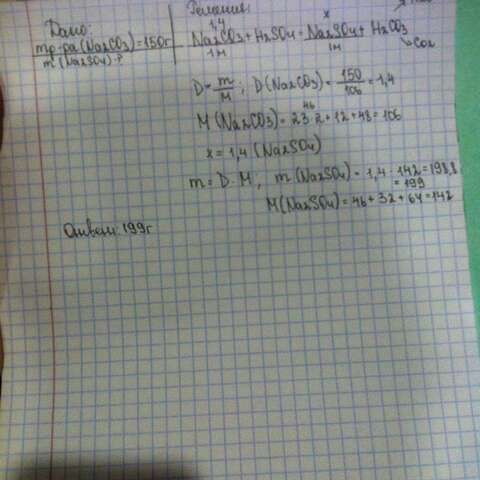 Дано:
mр-ра (Na2CO3) = 150г
m (Na2SO4) - ?
Решение:
1,4 x
Na2CO3 + H2SO4 = Na2SO4 + H2CO3
1м 1м
CO2
D = m/M ; D (Na2CO3) = 150/106 = 1,4
46
M (Na2CO3) = 23·2 + 12 + 48 = 106
x = 1,4 (Na2SO4)
m = D·M, m (Na2SO4) = 1,4 · 142 = 198,8
= 199
M (Na2SO4) = 46 + 32 + 64 = 142
Ответ: 199г